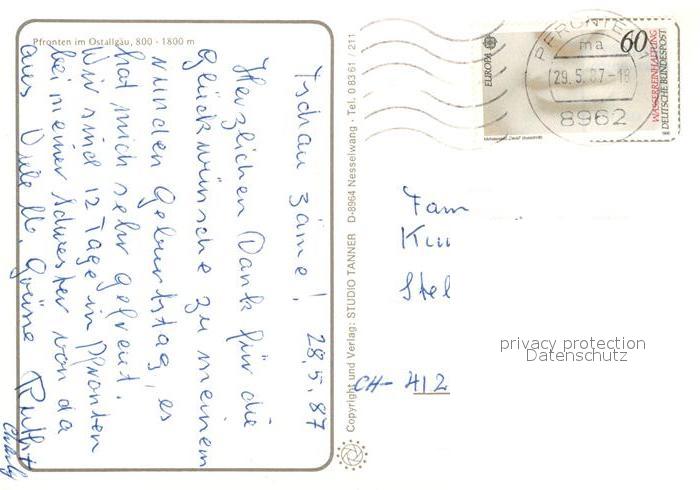 Pfronten im Ostallgäu, 800 - 1800 m
Tschau zäme! 28.5.87
Herzlichen Dank für die
Glückwünsche zu meinem
runden Geburtstag, es
hat mich sehr gefreut.
Wir sind 12 Tage in Pfronten
bei meiner Schwester von da
aus viele lb. Grüsse Ruth +
Charly
Copyright und Verlag: STUDIO TANNER D-8964 Nesselwang · Tel. 0 83 61 / 211
EUROPA
60
WASSERREINHALTUNG
DEUTSCHE BUNDESPOST
PFRONTEN 1
ma
29.5.87-18
8962
Fam
Stel
CH- 412
privacy protection
Datenschutz